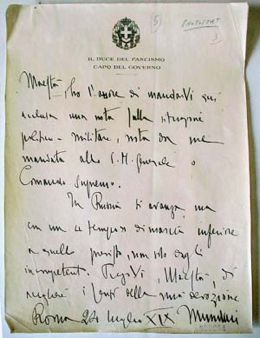 IL DUCE DEL FASCISMO
CAPO DEL GOVERNO
Maestà, ho l'onore di mandarVi qui
acclusa una nota sulla situazione
politico-militare, nota da me
mandata allo S.M. generale o
Comando Supremo.
In Russia si avanza, ma
con un tempo di marcia inferiore
a quello previsto, non solo dagli
incompetenti. Vi, Maestà, di
i sensi della mia devozione
Roma 24 luglio XIX Mussolini